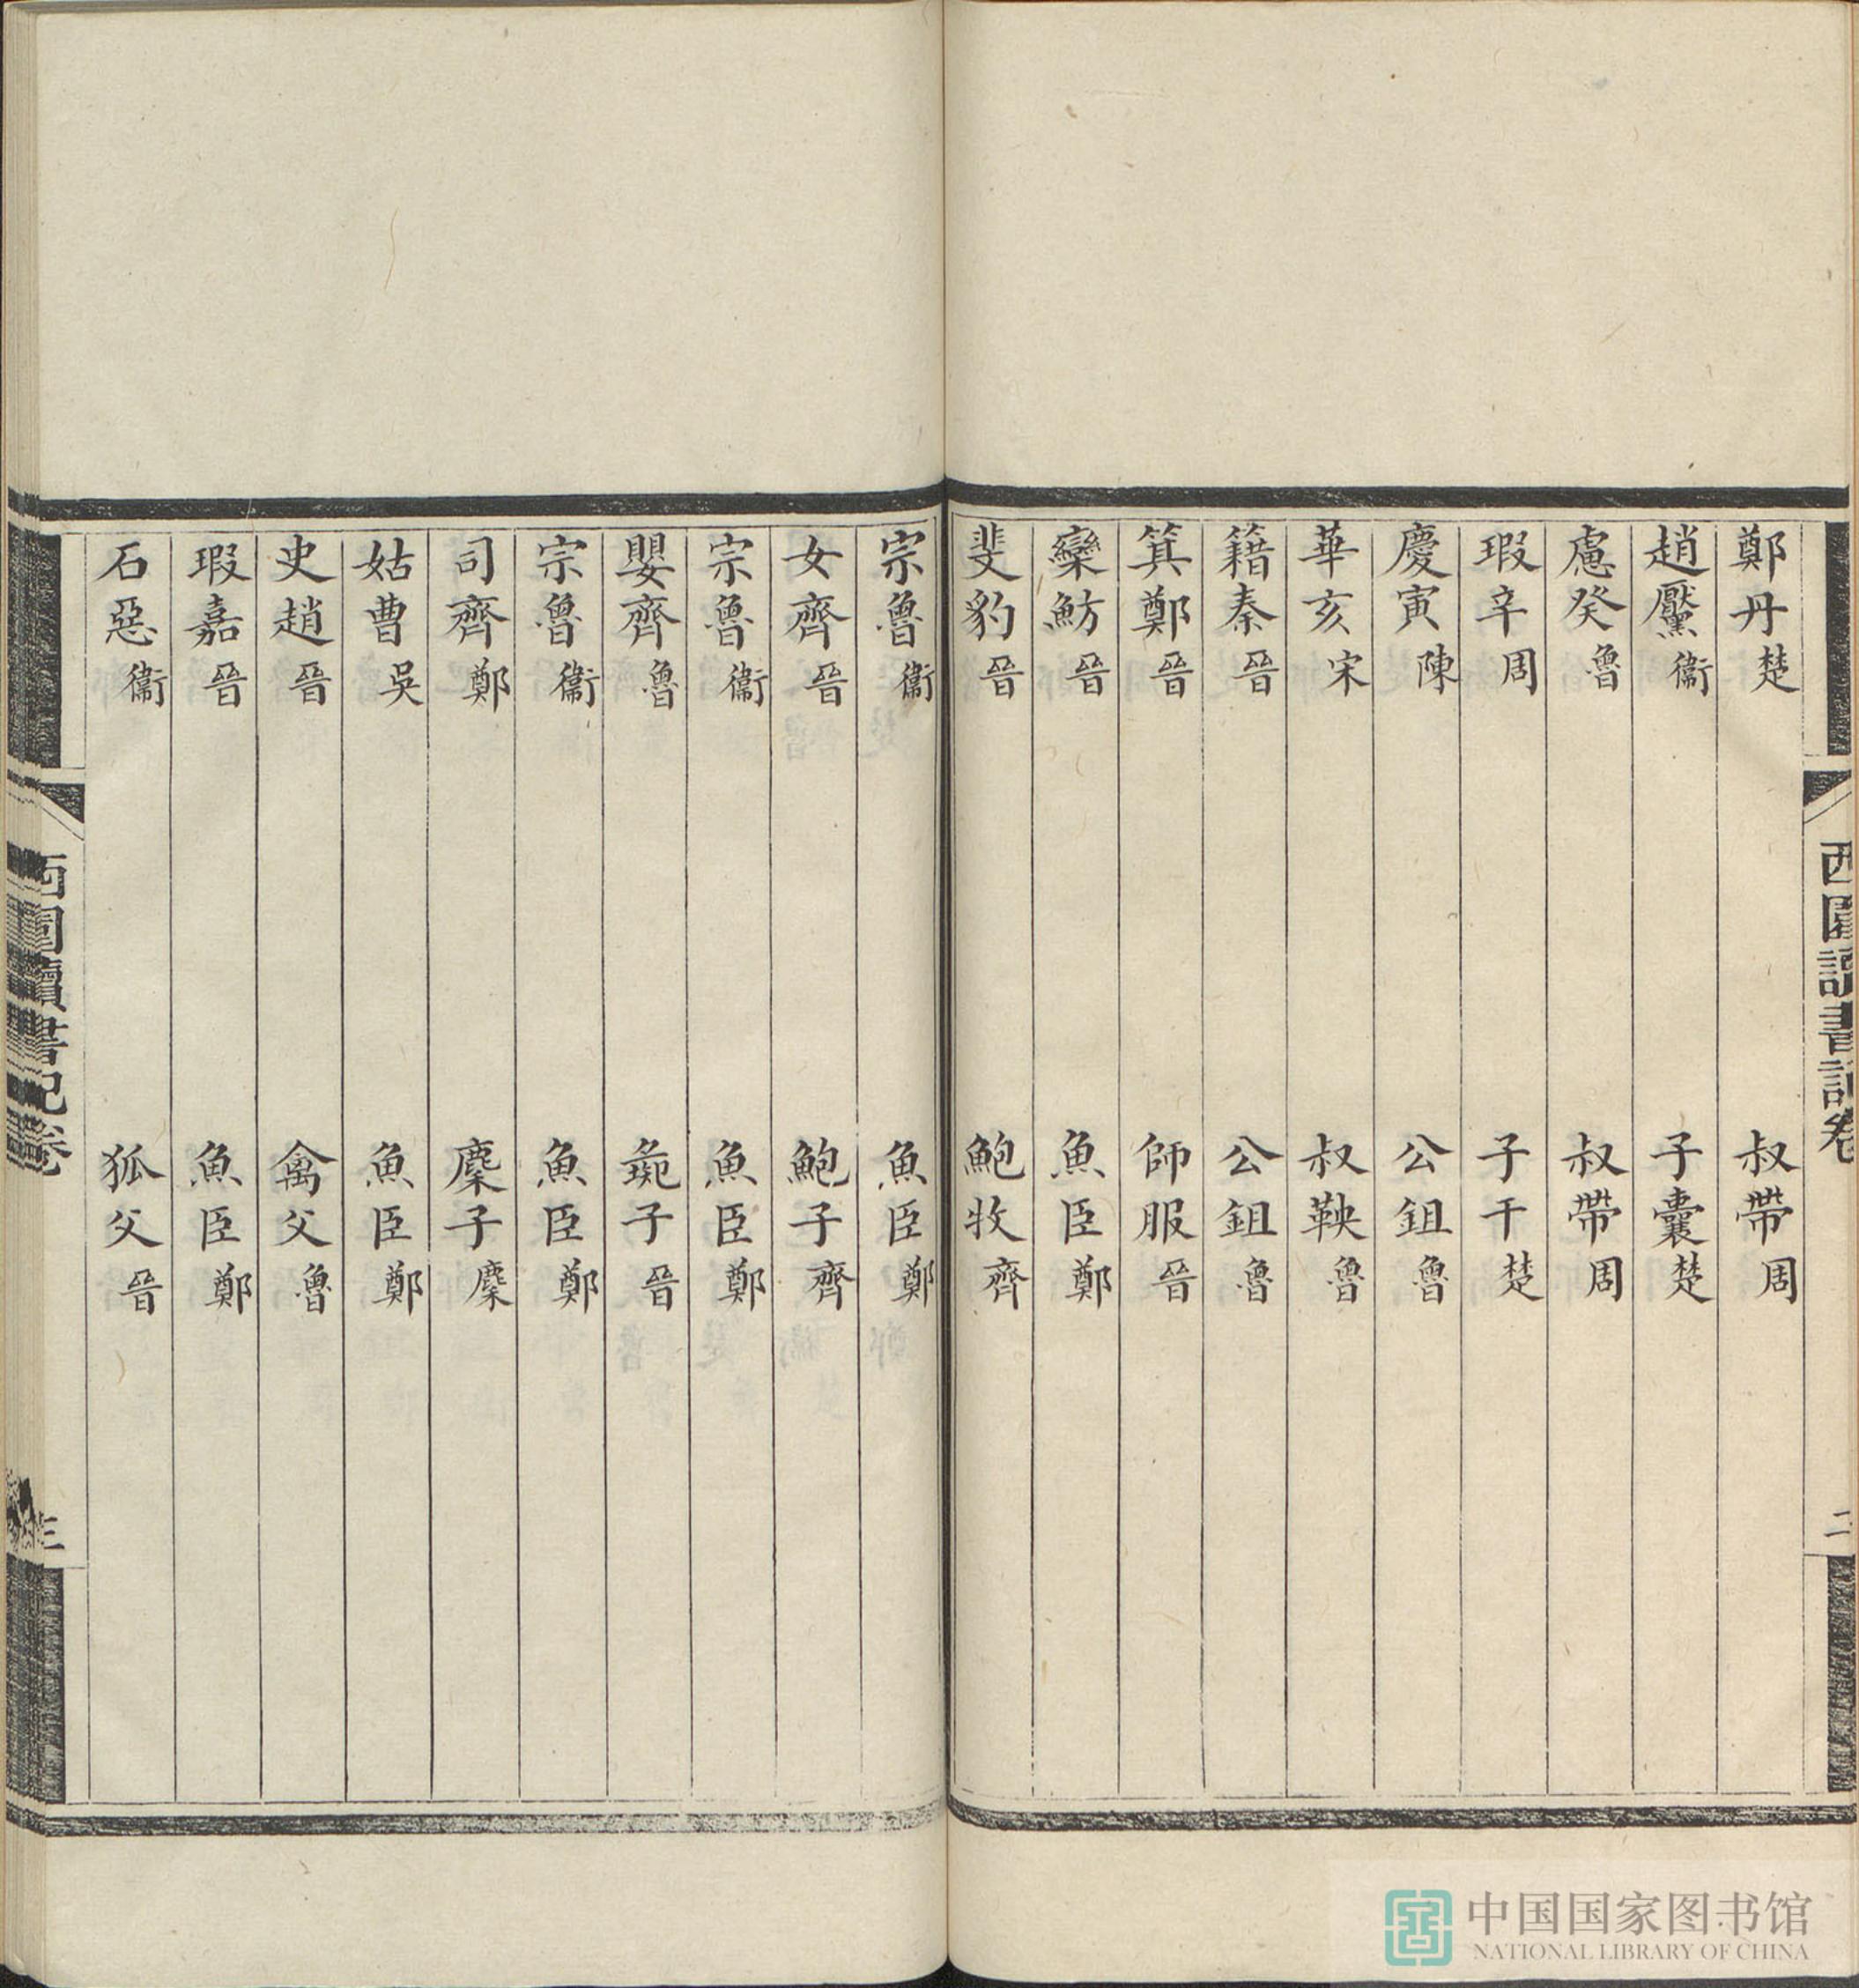 西圃讀書記卷
二
鄭丹楚 叔帶周
趙黶衞 子囊楚
慮癸魯 叔帶周
瑕辛周 子干楚
慶寅陳 公鉏魯
華亥宋 叔鞅魯
籍秦晉 公鉏魯
箕鄭晉 師服晉
欒魴晉 魚臣鄭
斐豹晉 鮑牧齊
宗魯衞 魚臣鄭
女齊晉 鮑子齊
宗魯衞 魚臣鄭
嬰齊魯 彘子晉
宗魯衞 魚臣鄭
司齊鄭 麇子麇
姑曹吳 魚臣鄭
史趙晉 禽父魯
瑕嘉晉 魚臣鄭
石惡衞 狐父晉
西圃讀書記卷
三
中国国家图书馆
NATIONAL LIBRARY OF CHINA